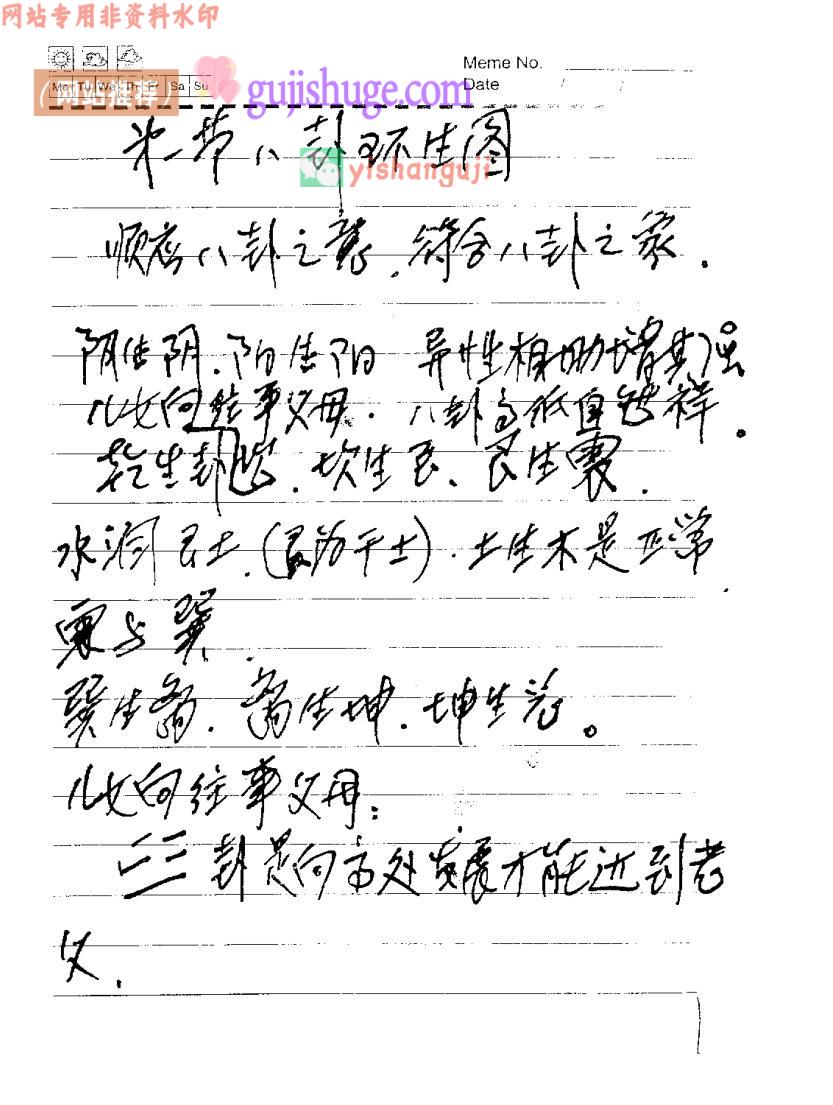 网站专用非资料水印
Meme No.
Mo Tu We Th Fr Sa Su
Date / /
（网站推荐）
gujishuge.com
第一节八卦环生图
yishanguji
顺应八卦之意，符合八卦之家．
阴生阴．阳生阳 异性相助增其强
儿女向往事父母．八卦高低自
祥。
乾生卦．坎生艮、艮生震．
水润艮土．(艮为干土)．土生木是正常．
震与巽．
巽生离．离生坤．坤生兑。
儿女向往事父母：
二三卦是向高处发展才能达到老
父．